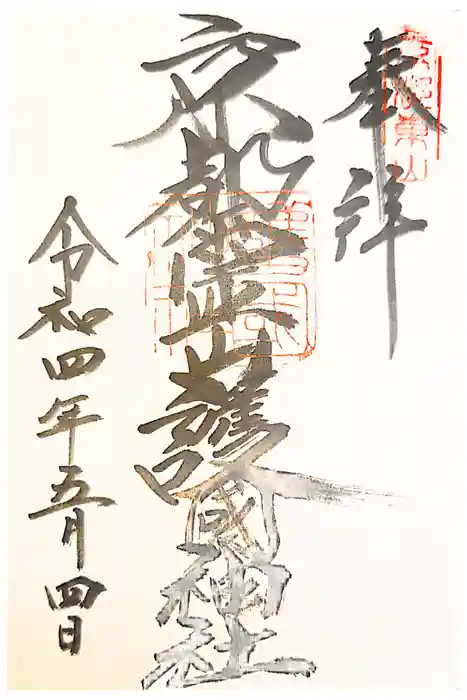 奉拝
京都霊山護國神社
令和四年五月四日